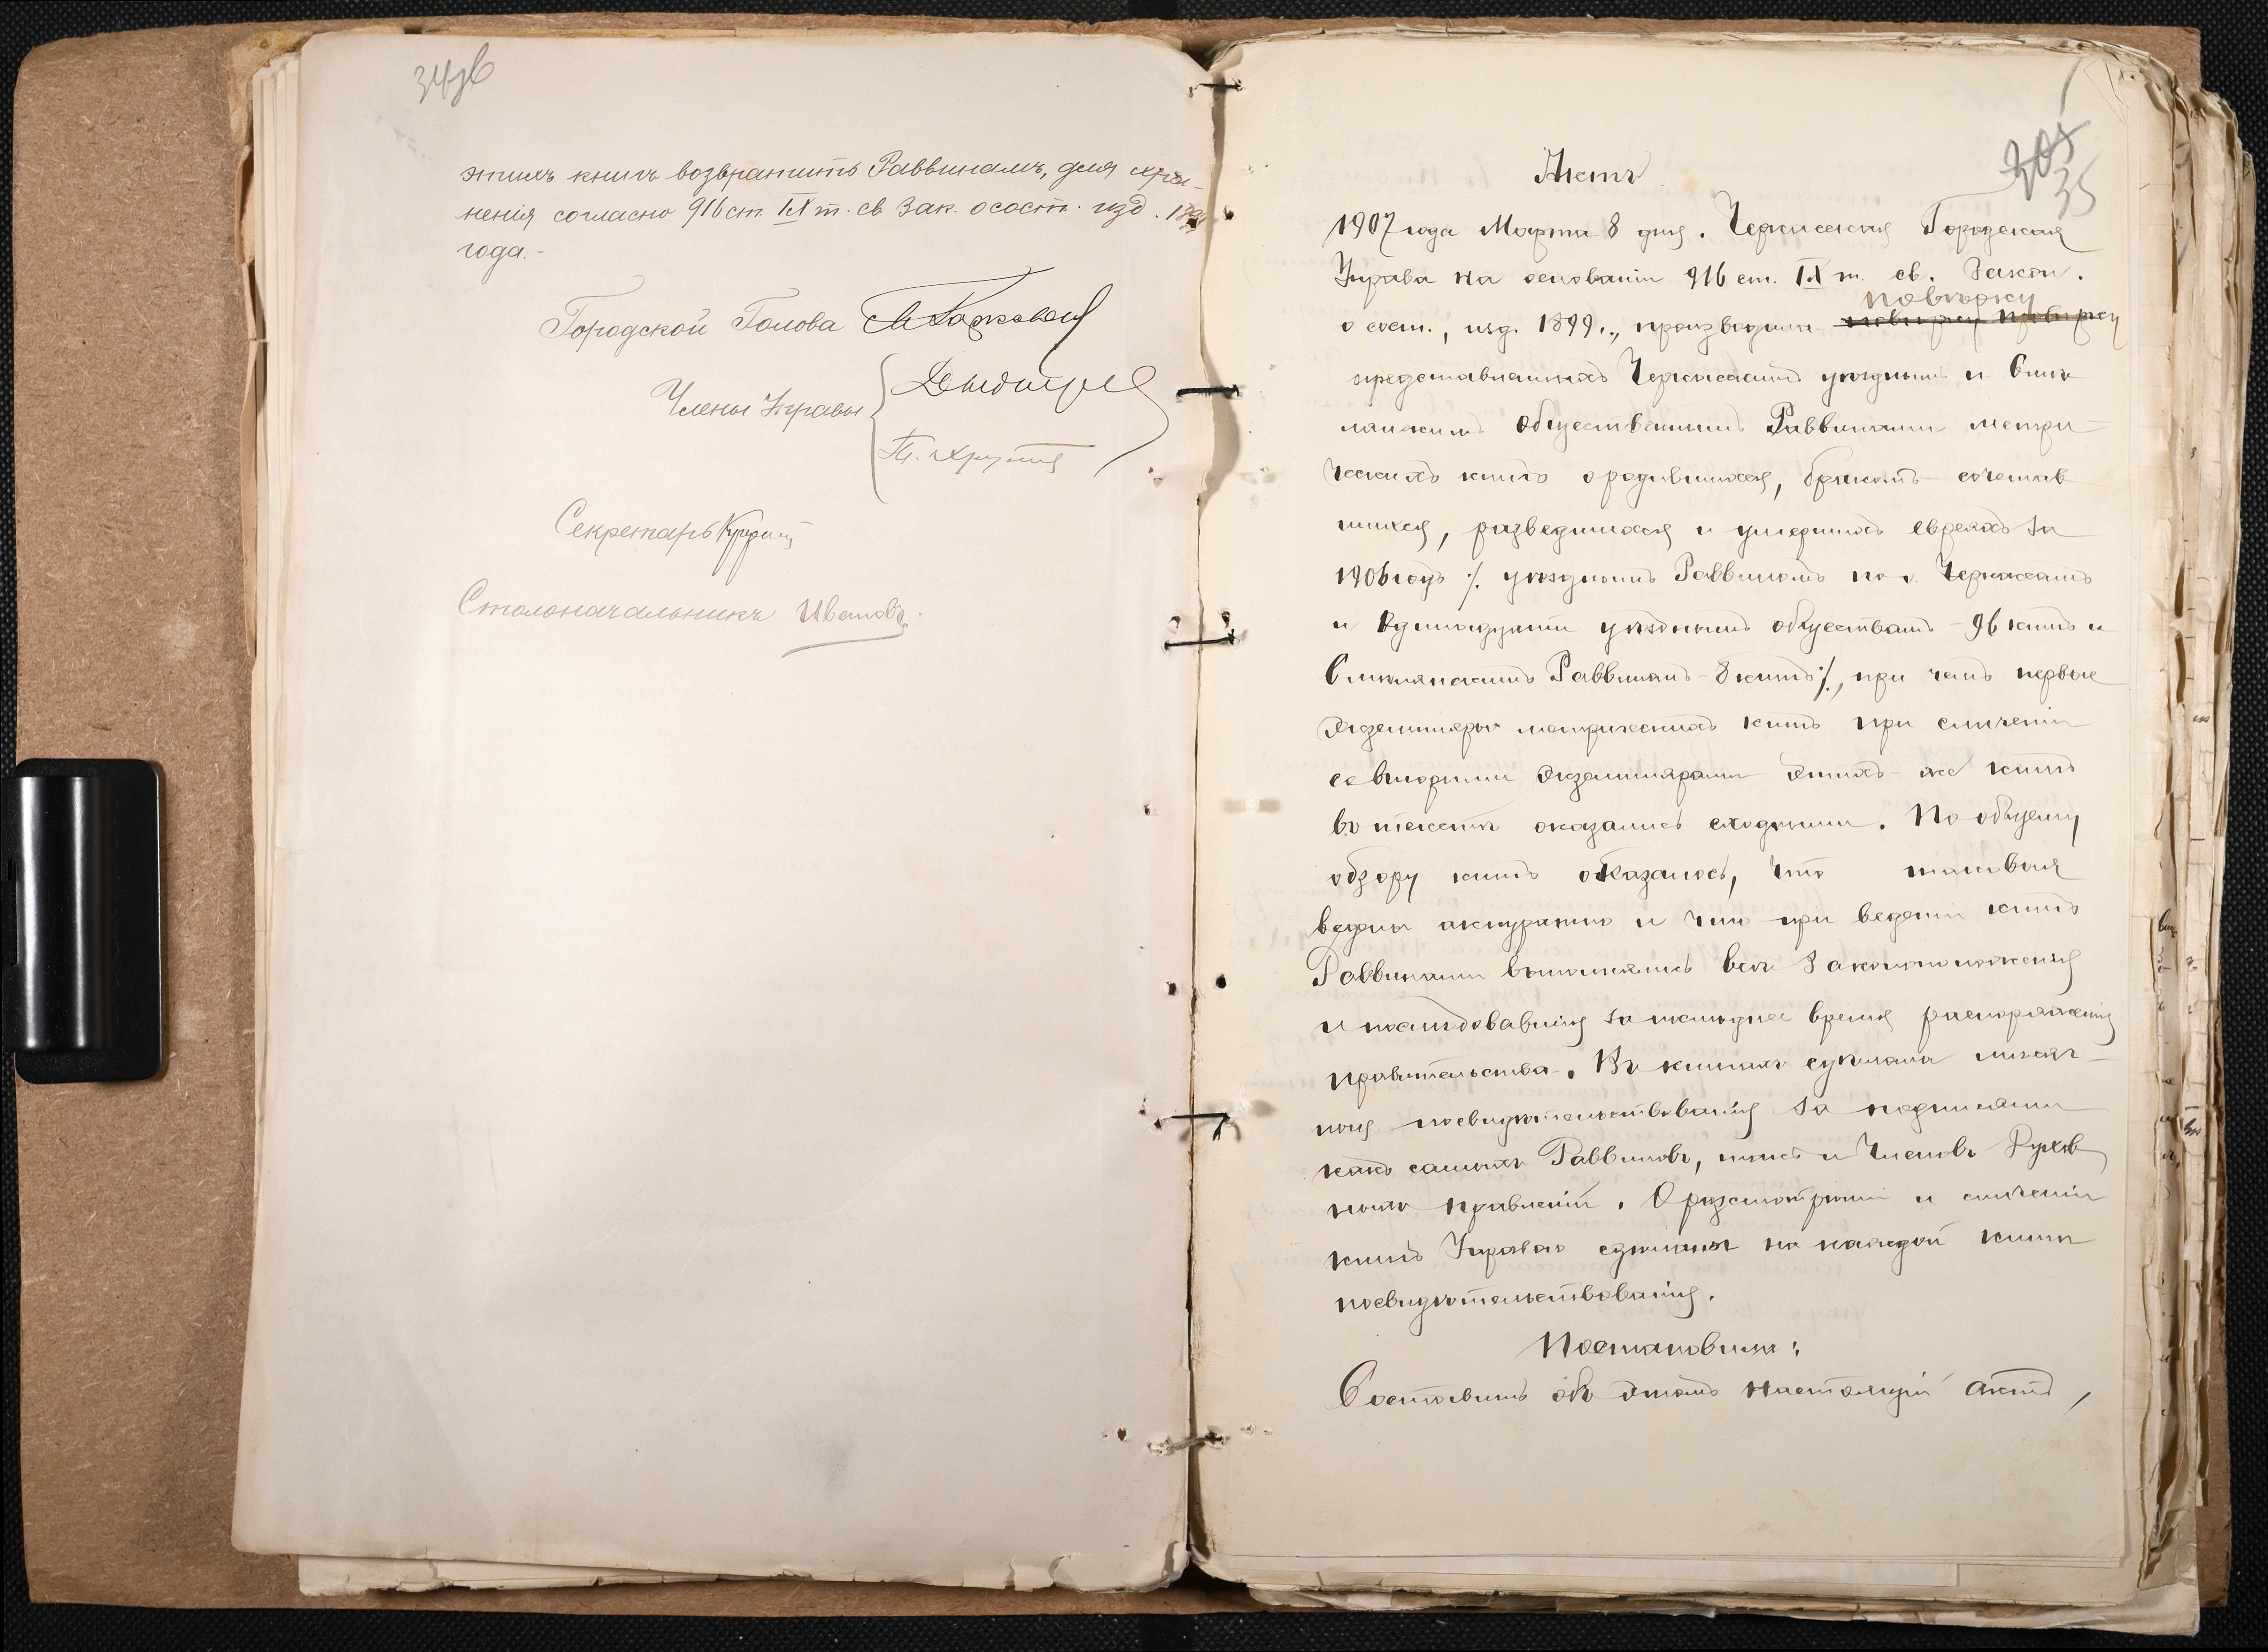 34об
этихъ книгъ возвратить Раввинамъ, для хра-
ненія согласно 916 ст. IX т. св. Зак. о сост. изд. 1899
года.-
Городской Голова
Члены Управы
Секретарь
Столоначальникъ Ивановъ
35
Актъ
1907 года Марта 8 дня. Черкасская Городская
Управа на основаніи 916 ст. IX т. св. Закон.
повѣрку
о сост., изд. 1899 г., производила
представленныхъ Черкасскимъ уѣзднымъ и Смѣ-
лянскимъ общественнымъ Раввинами метри-
ческихъ книгъ о родившихся, бракомъ сочетав-
шихся, разведшихся и умершихъ евреяхъ за
1906 годъ /. уѣзднымъ Раввиномъ по г. Черкассамъ
и одинадцати уѣзднымъ обществамъ - 96 книгъ и
Смѣлянскимъ Раввиномъ - 8 книгъ /., при чемъ первые
экземпляры метрическихъ книгъ при сличеніи
со вторыми экземплярами этихъ-же книгъ
въ текстѣ оказались сходными. По общему
обзору книгъ оказалось, что таковыя
ведены аккуратно и что при веденіи книгъ
Раввинами выполнялись всѣ Законоположенія
и послѣдовавшія за послѣднее время распоряженія
правительства. Въ книгахъ сдѣланы мѣсяч-
ныя посвидѣтельствованія за подписями
какъ самихъ Раввиновъ, такъ и Членовъ Духов-
наго правленія. О разсмотрѣніи и сличеніи
книгъ Управою сдѣланы на каждой книгѣ
посвидѣтельствованія.
Постановили:
Составить объ этомъ настоящій актъ,